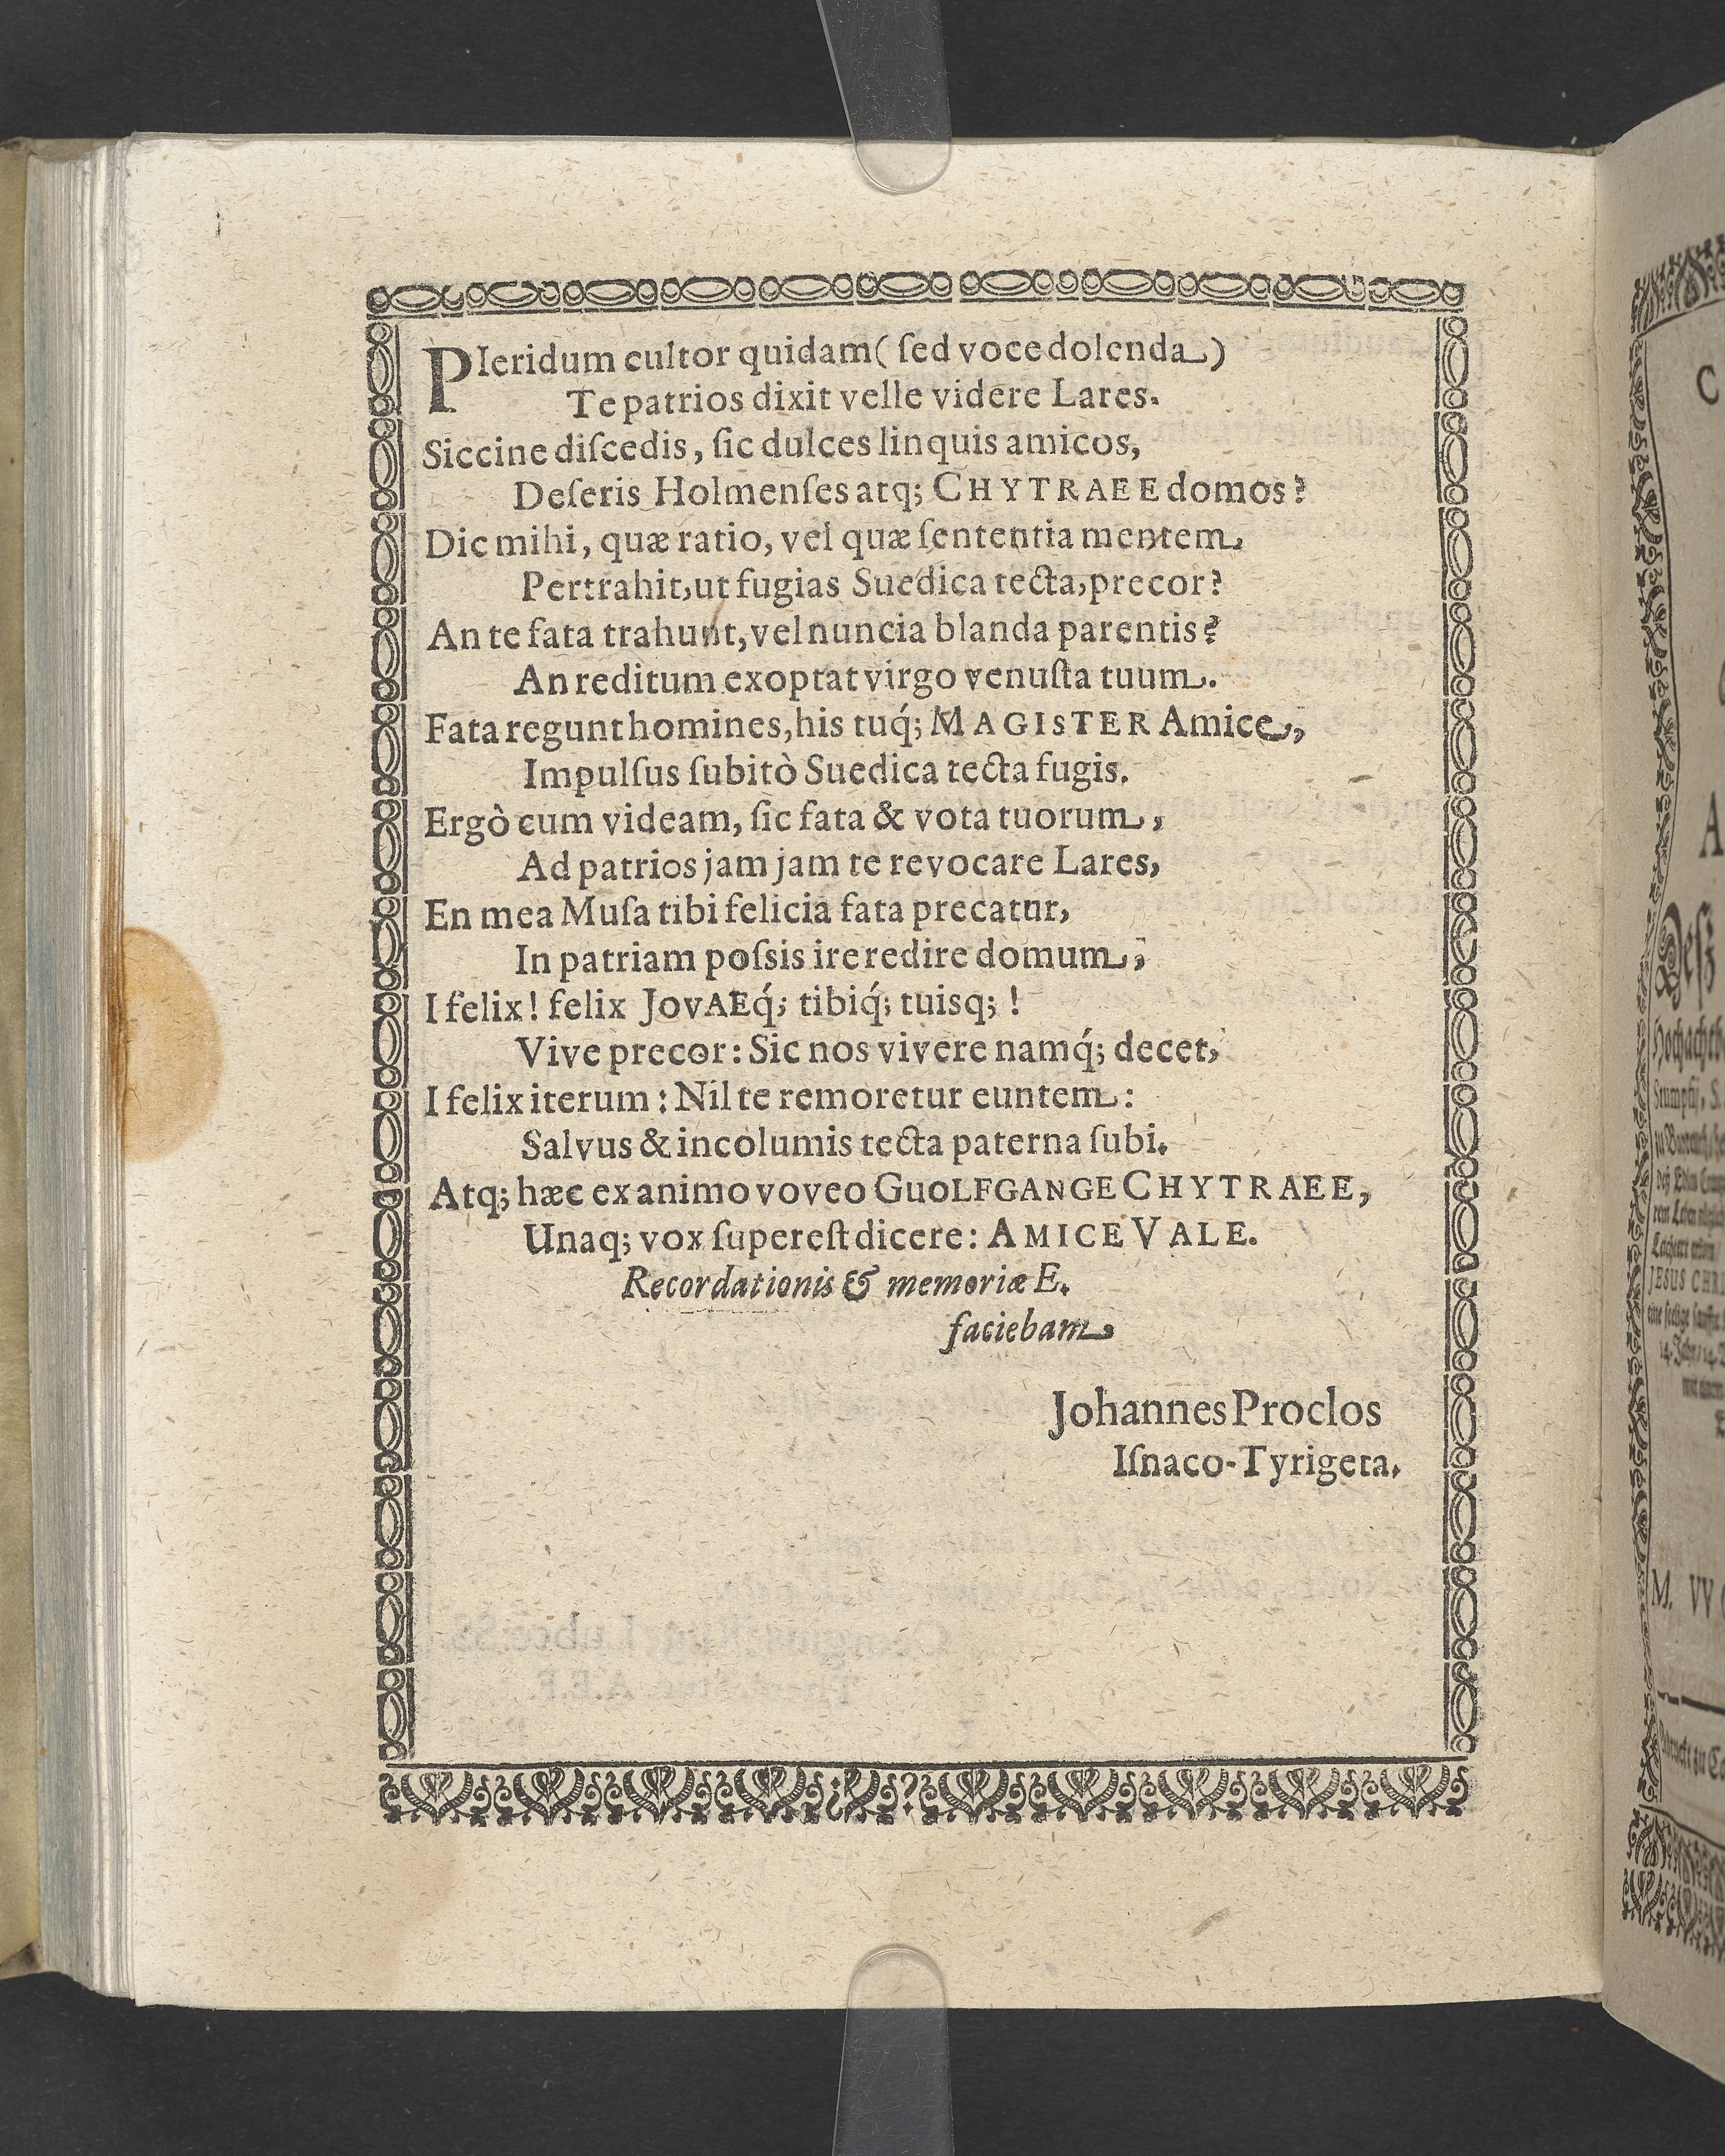 PIeridum cultor quidam ( ſed voce dolenda )
Te patrios dixit velle videre Lares.
Siccine diſcedis, ſic dulces linquis amicos,
Deſeris Holmenſes atq; CHYTRAEE domos?
Dic mihi, quæ ratio, vel quæ ſententia mentem
Pertrahit, ut fugias Suedica tecta, precor?
An te fata trahunt, vel nuncia blanda parentis?
An reditum exoptat virgo venuſta tuum.
Fata regunt homines, his tuq́; MAGISTER Amice,
Impulſus ſubitò Suedica tecta fugis.
Ergò cum videam, ſic fata & vota tuorum,
Ad patrios jam jam te revocare Lares,
En mea Muſa tibi felicia fata precatur,
In patriam poſsis ire redire domum,
I felix! felix JOVAEq́; tibiq́; tuisq; !
Vive precor: Sic nos vivere namq́; decet,
I felix iterum: Nil te remoretur euntem:
Salvus & incolumis tecta paterna ſubi.
Atq; hæc ex animo voveo GuOLFGANGE CHYTRAEE,
Unaq; vox ſupereſt dicere: AMICE VALE.
Recordationis & memoriæ E.
faciebam
Johannes Proclos
Iſnaco-Tyrigeta.
C
A
Deſz
M. VV